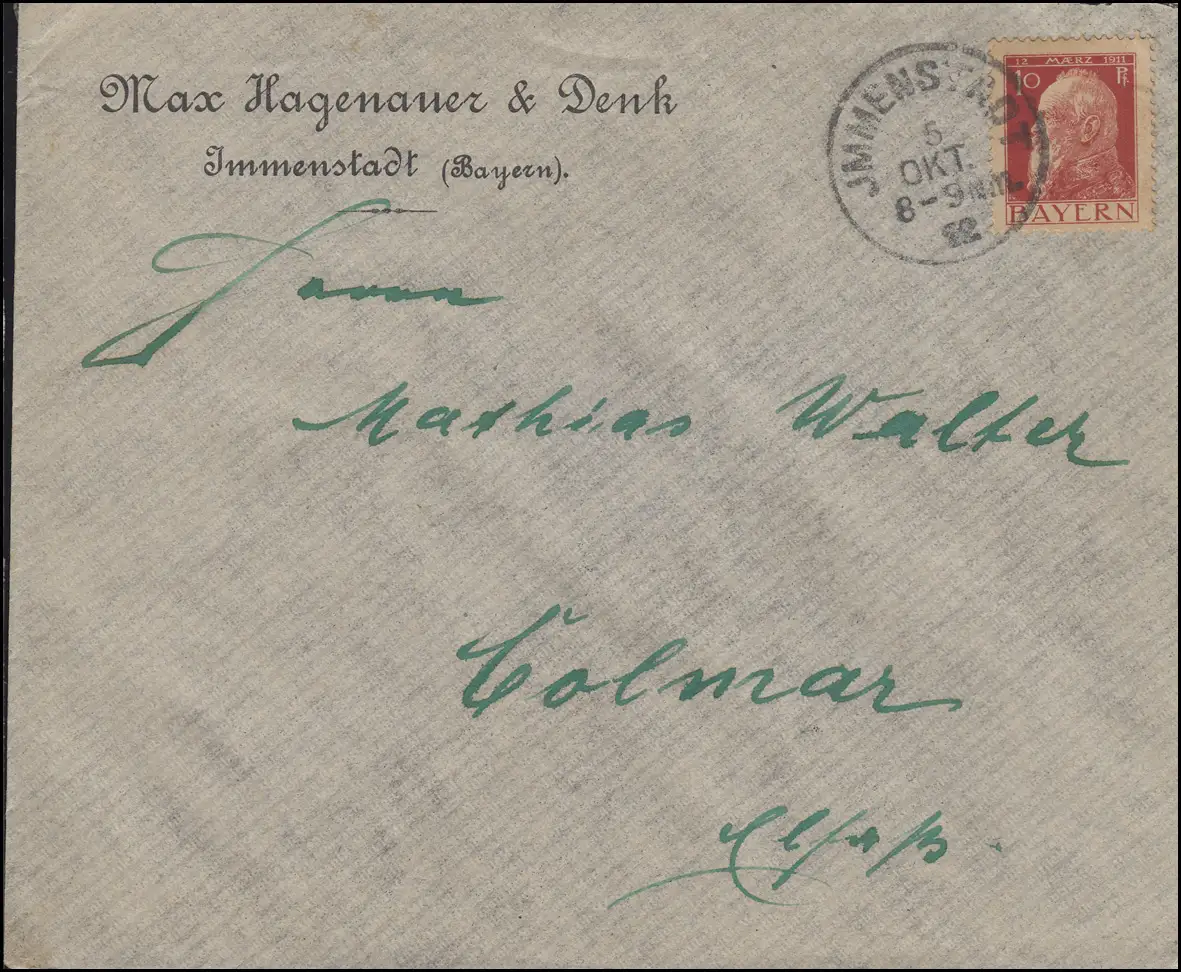 Max Hagenauer & Denk
Immenstadt (Bayern).
12 MÆRZ 1911
10 Pf.
BAYERN
JMMENSTADT
5
OKT.
8-9 N.M.
Herrn
Mathias Walter
Colmar
Elsaß.